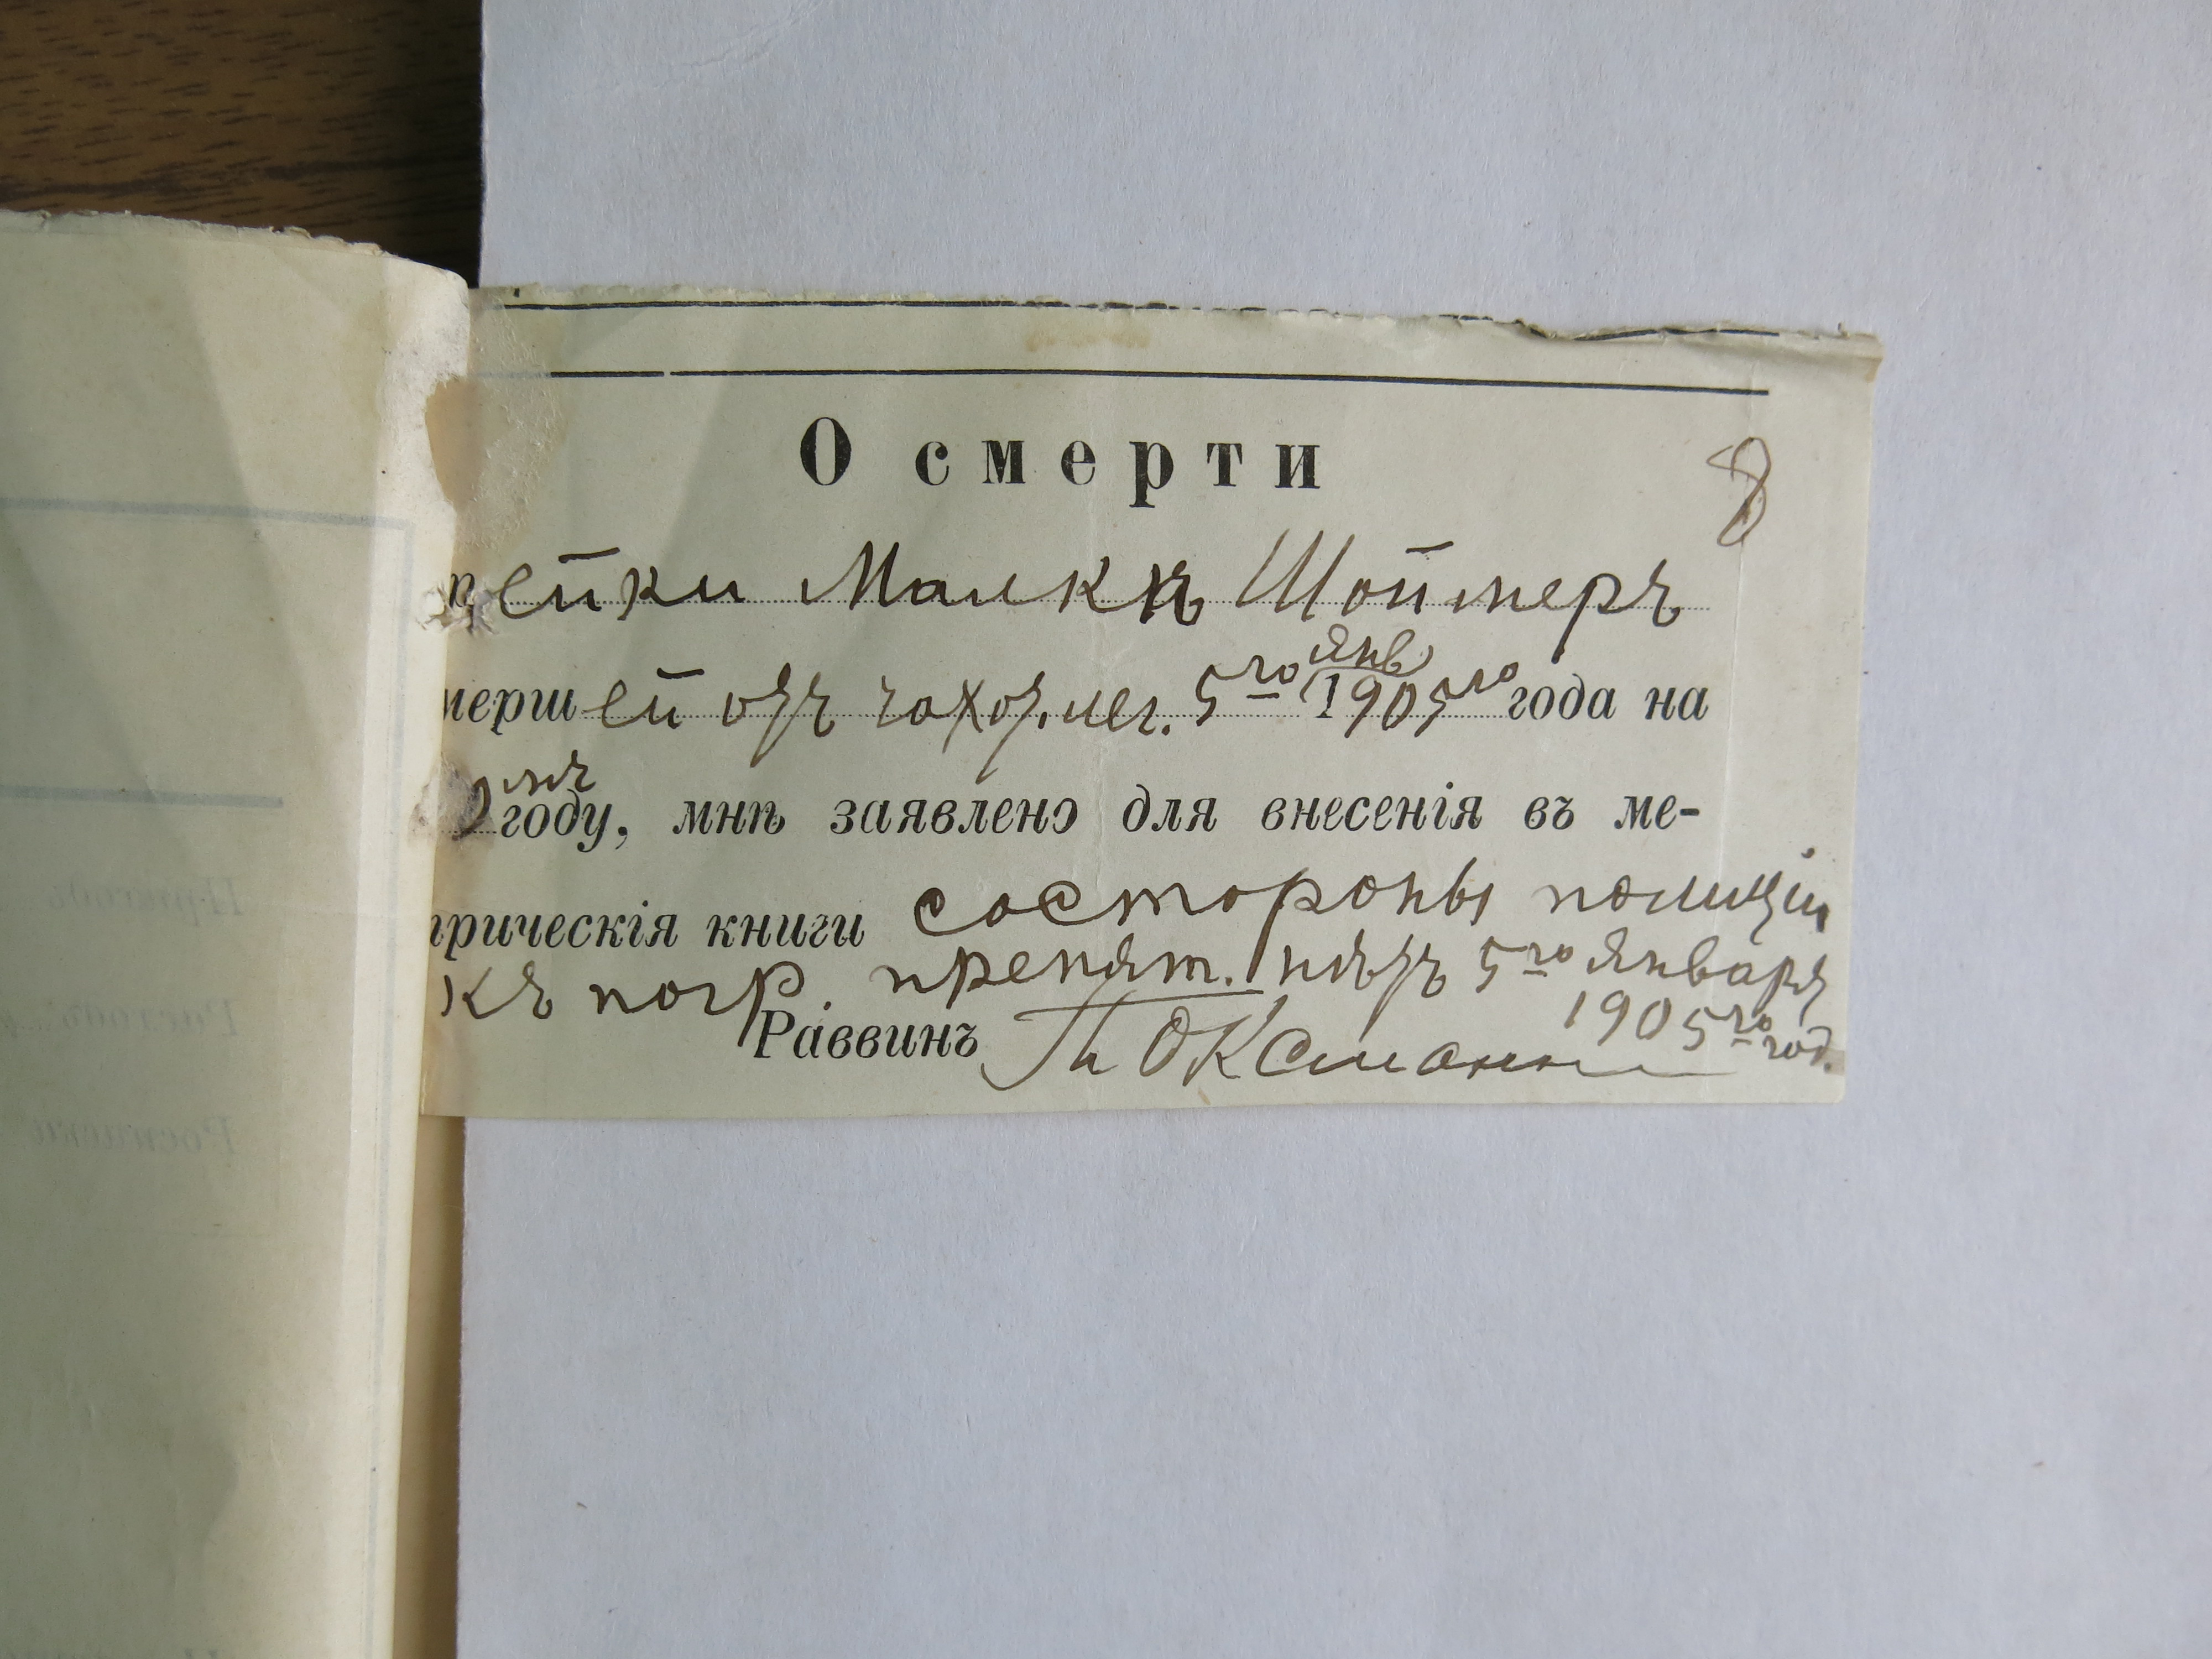 О смерти
8
ейки Малки Шоймеръ
мершей отъ чахот. лег. 5го Янв 1905го года на
0мъ году, мнѣ заявлено для внесенія въ ме-
трическія книги состороны полиціи
къ погр. препят. нѣтъ 5го Января
1905го год.
Раввинъ П Оксман